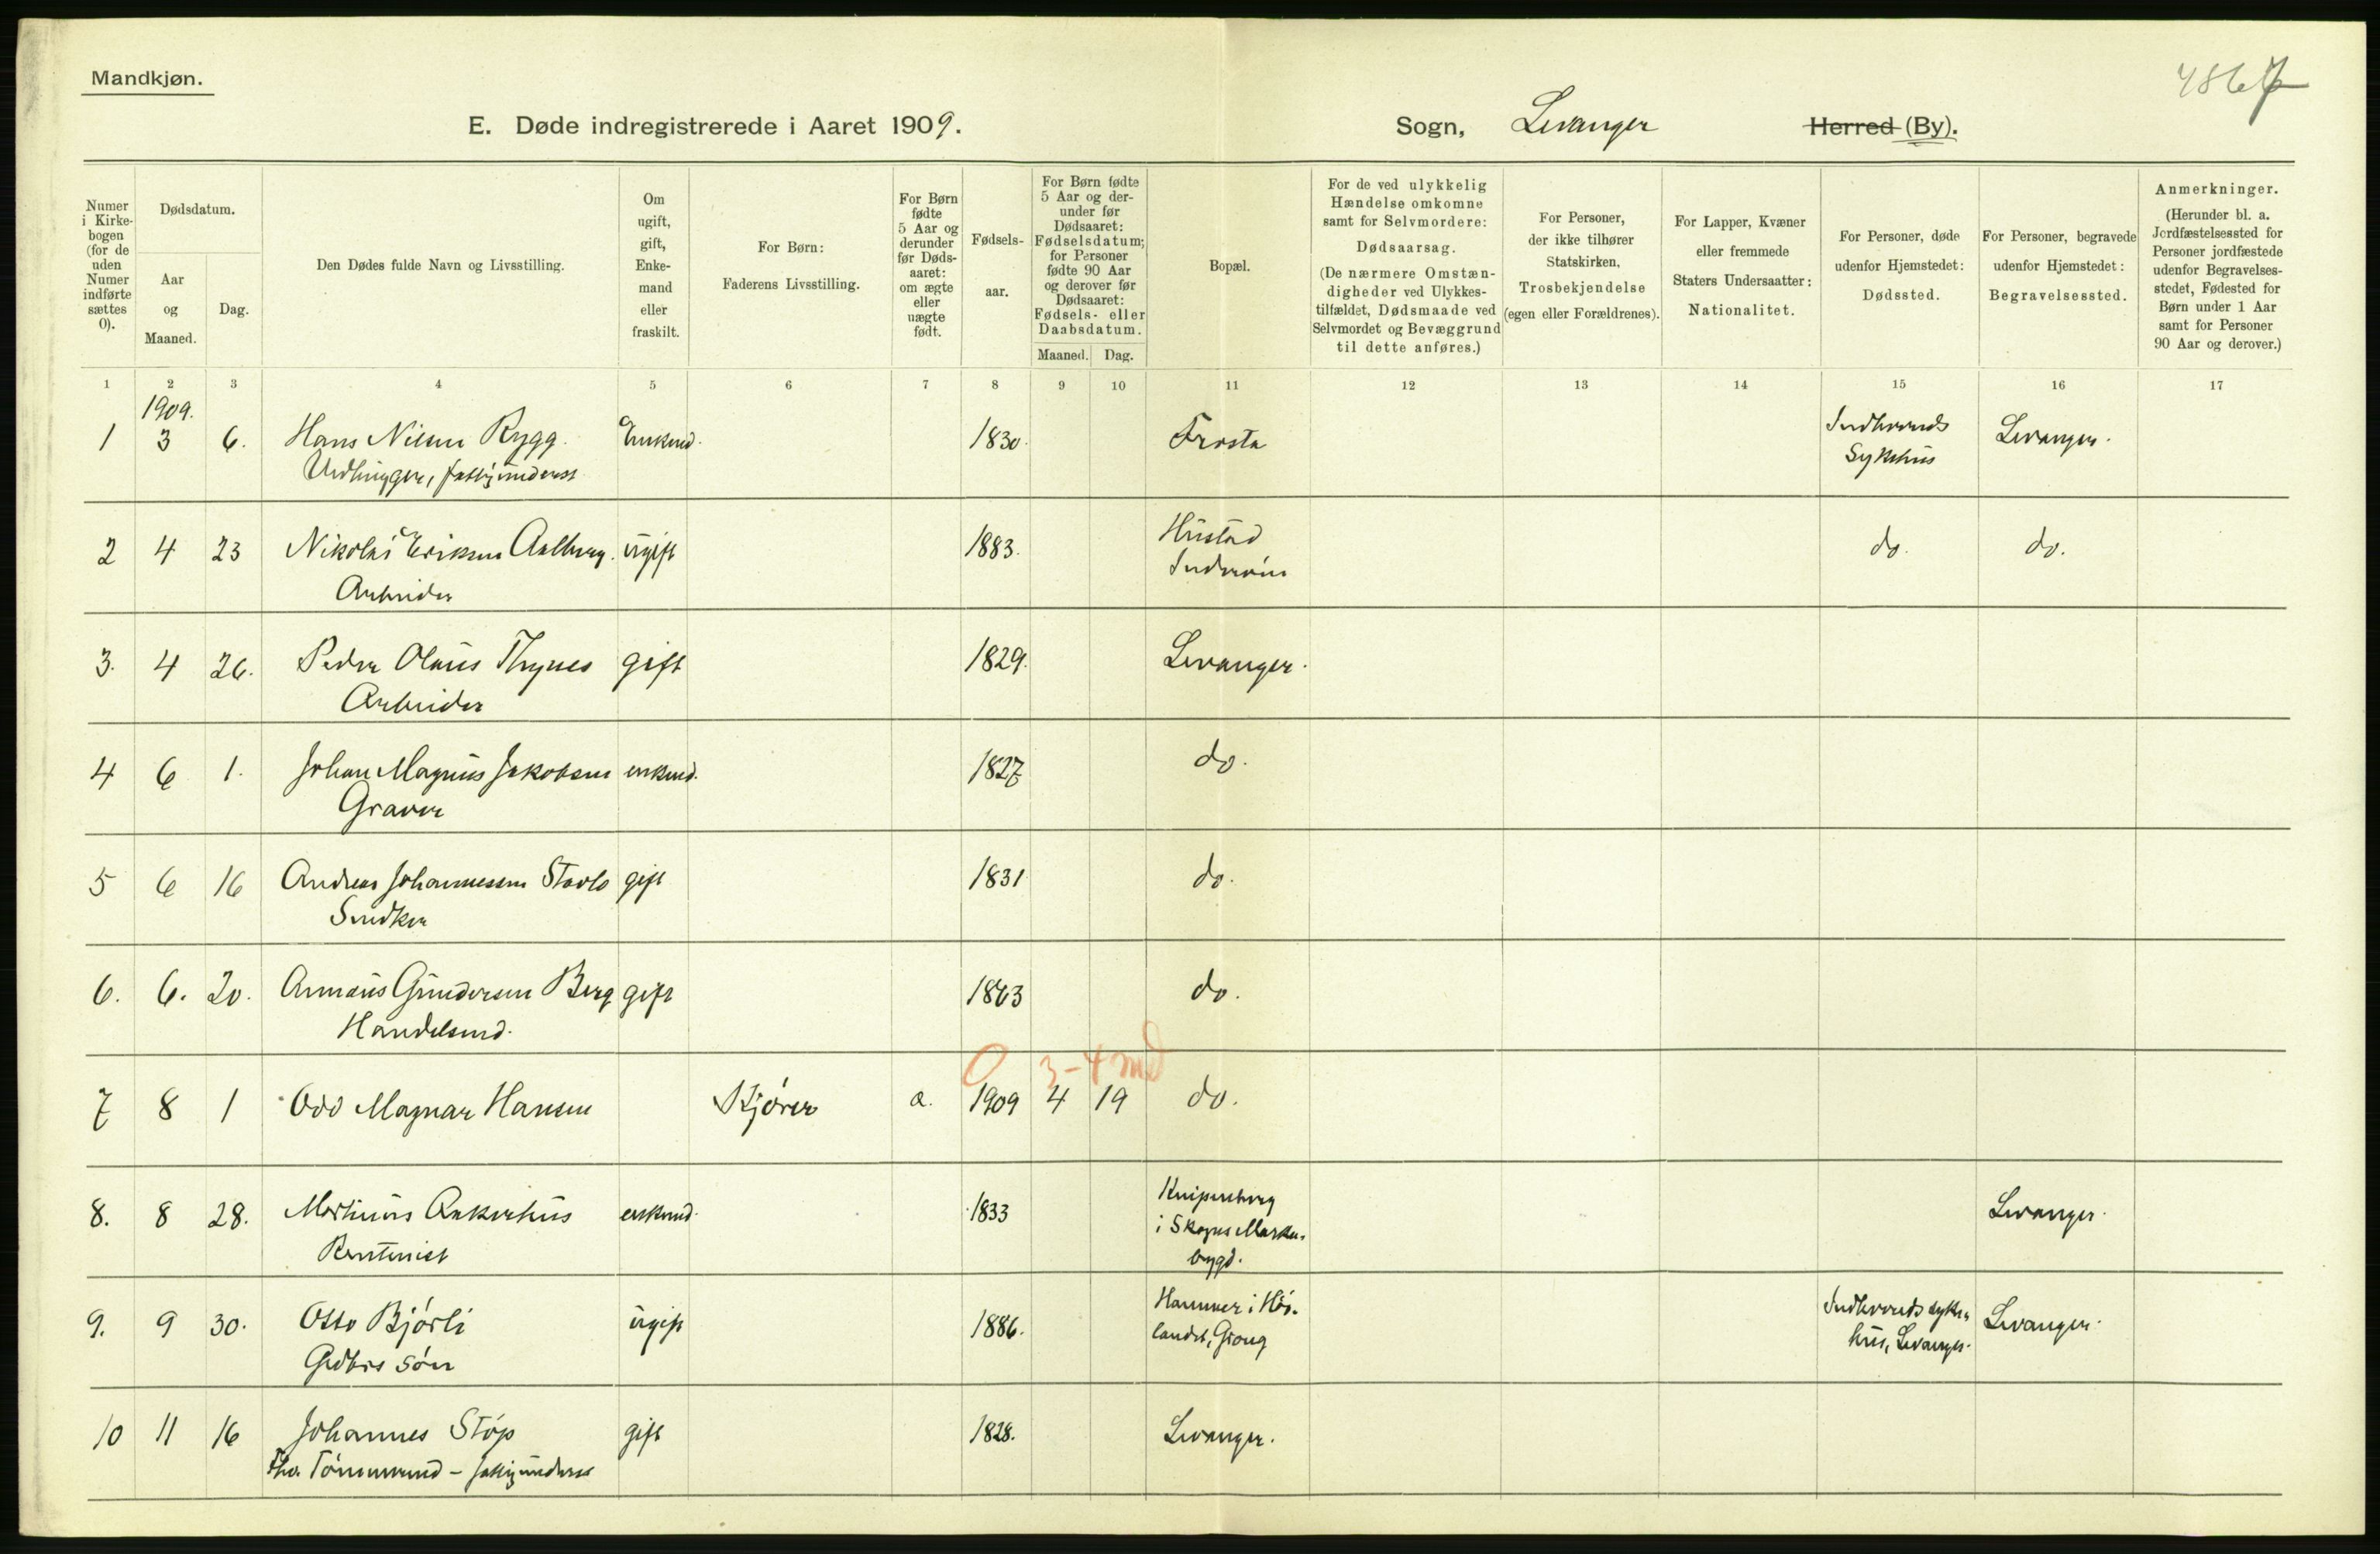 Mandkjøn.
4867
E. Døde indregistrerede i Aaret 1909.
Sogn, Levanger Herred (By).
Numer i Kirkebogen (for de uden Numer indførte sættes 0).
Dødsdatum.
Aar og Maaned.
Dag.
Den Dødes fulde Navn og Livsstilling.
Om ugift, gift, Enkemand eller fraskilt.
For Børn: Faderens Livsstilling.
For Børn fødte 5 Aar og derunder før Dødsaaret: om ægte eller uægte født.
Fødselsaar.
For Børn fødte 5 Aar og derunder før Dødsaaret: Fødselsdatum; for Personer fødte 90 Aar og derover før Dødsaaret: Fødsels- eller Daabsdatum.
Maaned. Dag.
Bopæl.
For de ved ulykkelig Hændelse omkomne samt for Selvmordere: Dødsaarsag. (De nærmere Omstændigheder ved Ulykkestilfældet, Dødsmaade ved Selvmordet og Bevæggrund til dette anføres.)
For Personer, der ikke tilhører Statskirken, Trosbekjendelse (egen eller Forældrenes).
For Lapper, Kvæner eller fremmede Staters Undersaatter: Nationalitet.
For Personer, døde udenfor Hjemstedet: Dødssted.
For Personer, begravede udenfor Hjemstedet: Begravelsessted.
Anmerkninger. (Herunder bl. a. Jordfæstelsessted for Personer jordfæstede udenfor Begravelsesstedet, Fødested for Børn under 1 Aar samt for Personer 90 Aar og derover.)
1 2 3 4 5 6 7 8 9 10 11 12 13 14 15 16 17
1909.
1 3 6. Hans Nilsen Rygg. Enkemd. 1830. Frosta Indherreds Levanger.
fattigunderst. Sykehus
2 4 23 Nikolai Eriksen Aalberg. ugift 1883. Hustad do. do.
Arbeider Inderøen
3. 4 26. Peder Olaus Thynes gift 1829. Levanger.
Arbeider
4 6 1. Johan Magnus Jakobsen enkemd. 1827 do.
Graver
5 6 16 Andreas Johannessen Stavlo gift 1831 do.
Snedker
6. 6. 20. Gundersen Berg gift 1863 do.
Handelsmd.
0 3-4 md
7 8 1 Odd Magnar Hansen Kjører æ. 1909 4 19 do.
8. 8 28. Martinus Ankerhus enkemd. 1833 Levanger.
Rentenist i Skogns Marka-
bygd.
9. 9 30. Otto Bjørli ugift 1886. Hammer i Høi- Indherreds syke- Levanger.
Gdbrs søn landet, Grong hus, Levanger.
10 11 16 Johannes Støp gift 1828. Levanger.
Fhv. Tømmermd - fattigunderst